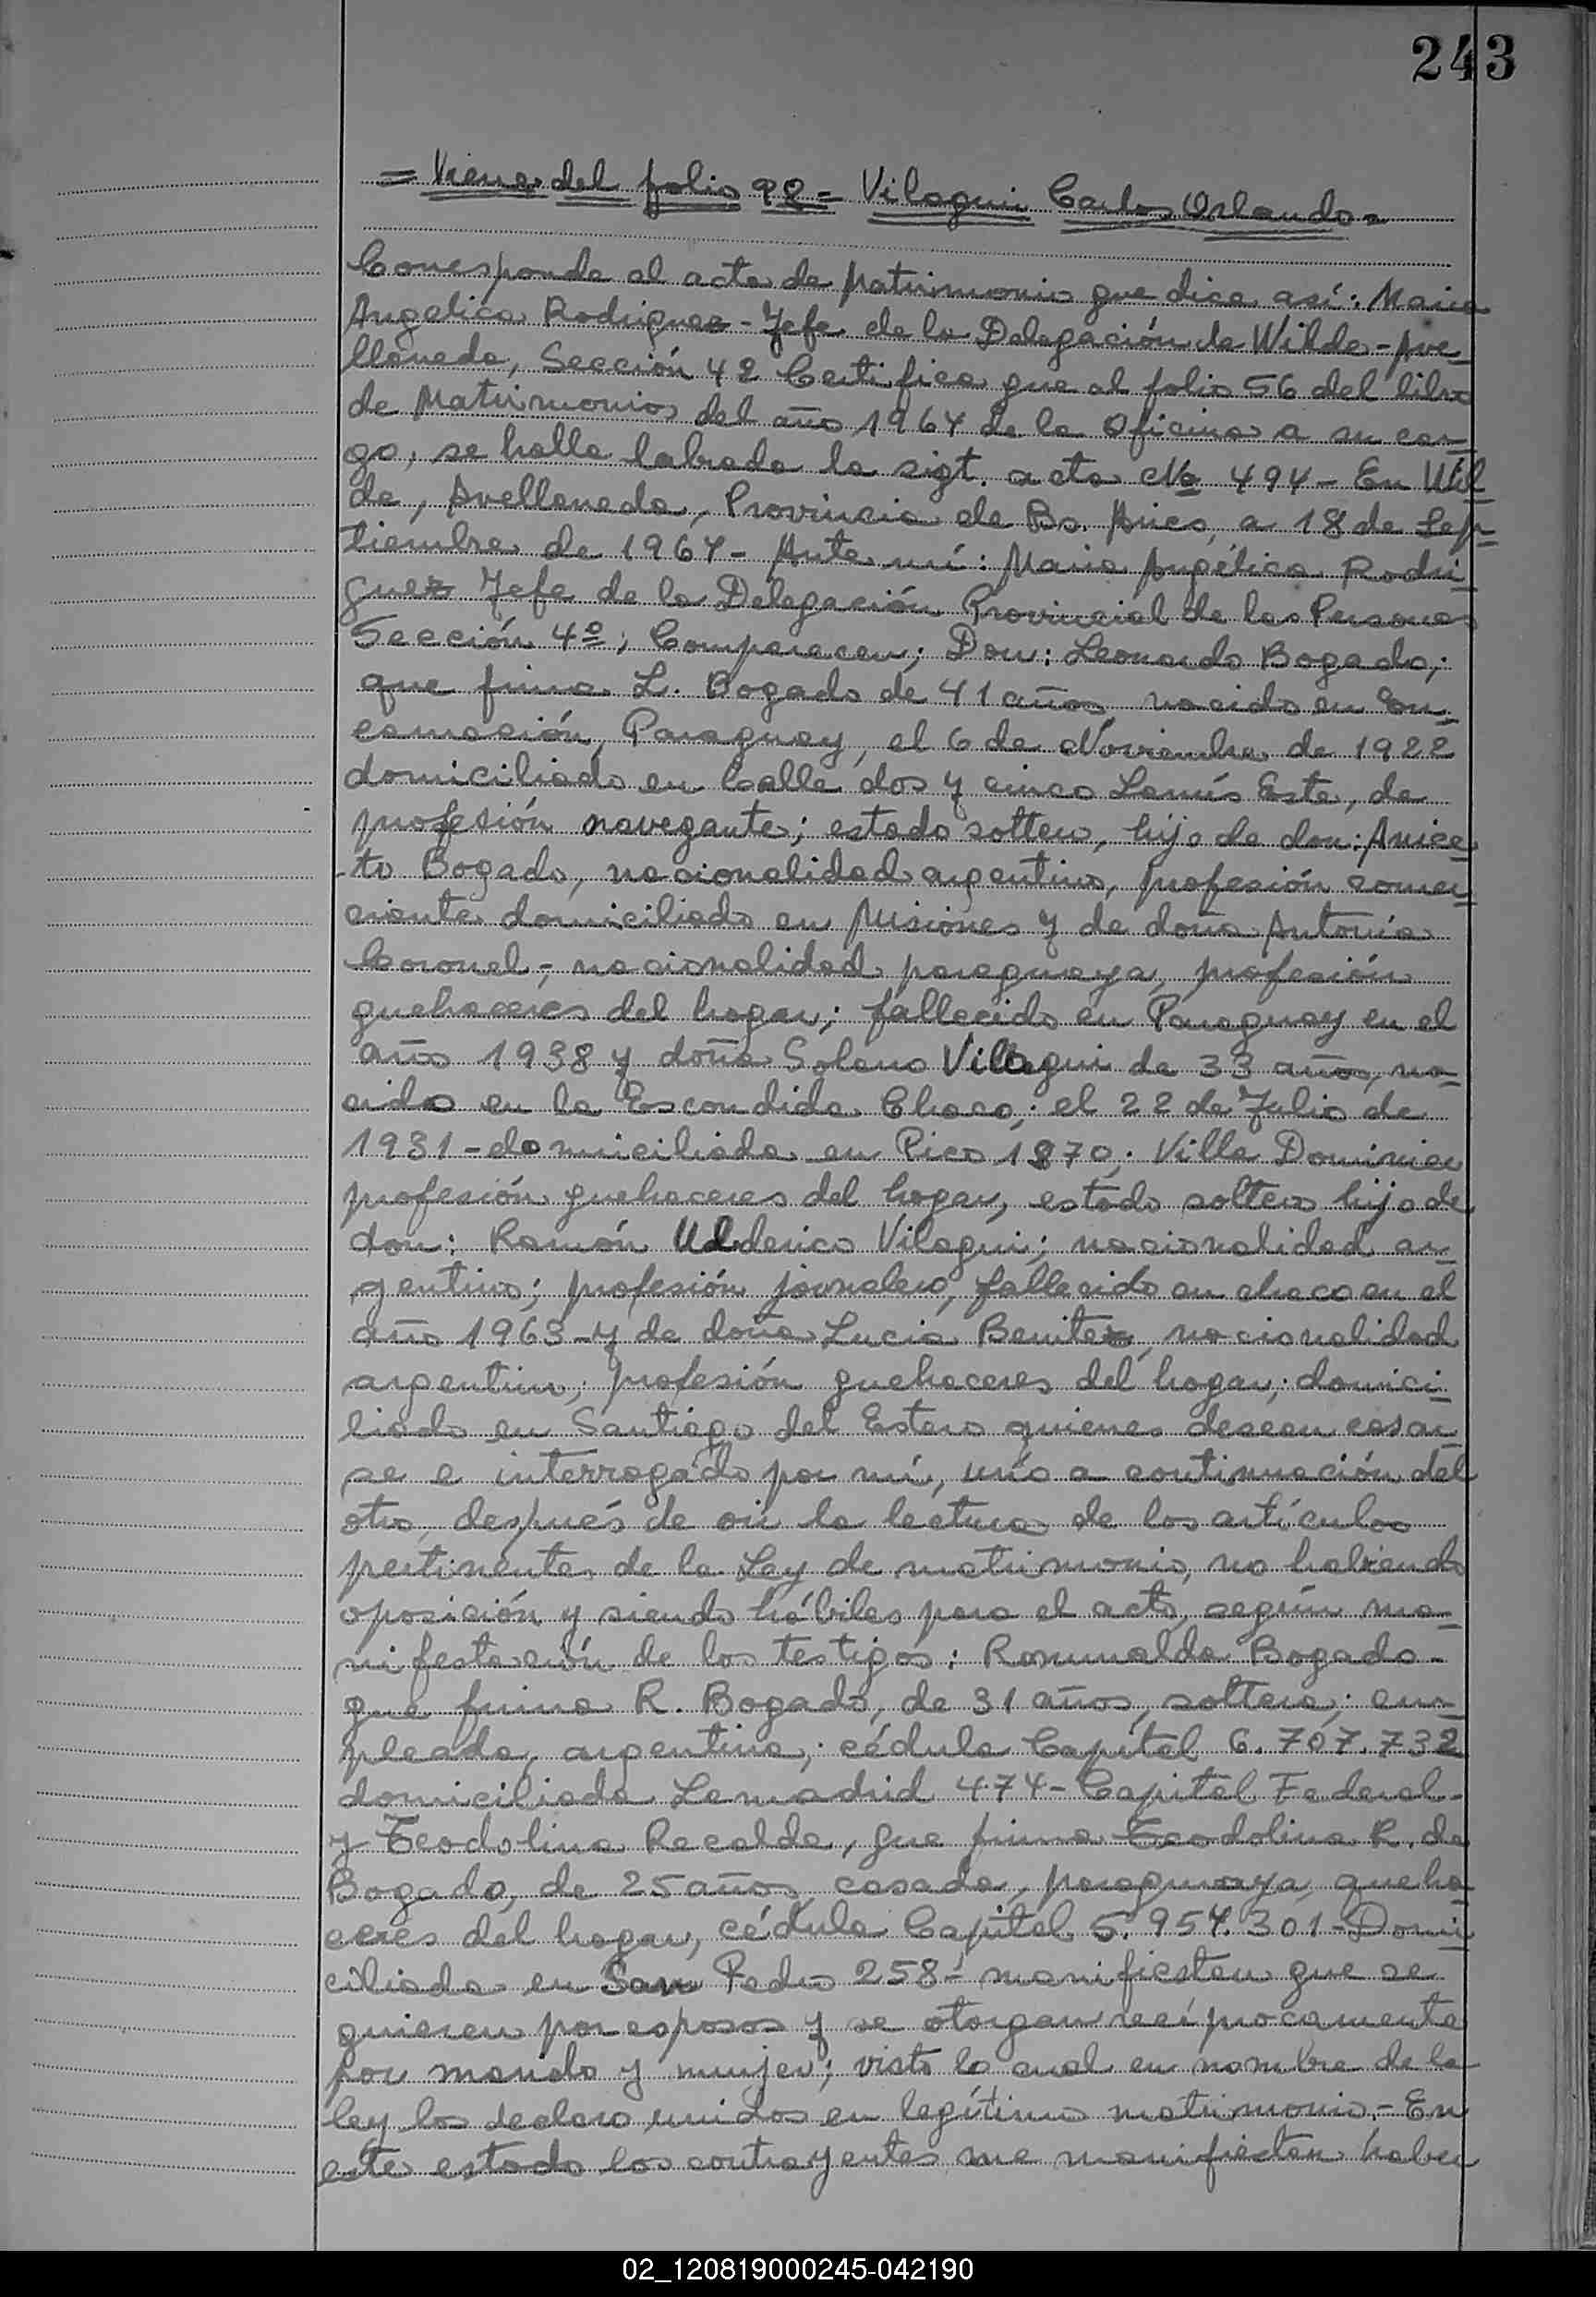 243
= Viene del folio 92 = Vilagui Carlos Orlando =
Corresponde al acta de Matrimonio que dice así: Maria
Angelica Rodriguez - Jefe de la Delegación de Wilde - Ave
llaneda, Sección 4ª Certifica que al folio 56 del libro
de Matrimonios del año 1964 de la Oficina a su car
go, se halla labrada la sigt. acta Nº 494 - En Wil
de, Avellaneda, Provincia de Bs. Aires, a 18 de Sep
tiembre de 1964 - Ante mí: Maria Angélica Rodri
guez Jefe de la Delegación Provincial de las Personas
Sección 4ª; Comparecen; Don: Leonardo Bogado;
que firma L. Bogado de 41 años nacido en En
carnación, Paraguay, el 6 de Noviembre de 1922
domiciliado en Calle dos y cinco Lanús Este, de
profesión navegante; estado soltero, hijo de don: Anice
to Bogado, nacionalidad argentino, profesión comer
ciante domiciliado en Misiones y de doña Antonia
Coronel, - nacionalidad paraguaya, profesión
quehaceres del hogar; fallecido en Paraguay en el
año 1938 y doña Solana Villagui de 33 años, na
cida en la Escondida Chaco; el 22 de Julio de
1931 - domiciliada en Pico 1870; Villa Dominico
profesión quehaceres del hogar, estado soltero hijo de
don: Ramón Ulderico Vilagui; nacionalidad ar
gentino; profesión jornalero, fallecido en chaco en el
año 1963 - y de doña Lucia Benitez, nacionalidad
argentina; profesión quehaceres del hogar; domici
liado en Santiago del Estero quienes desean casar
se e interrogado por mí, uno a continuación del
otro, después de oir la lectura de los artículos
pertinentes de la Ley de matrimonio, no habiendo
oposición y siendo hábiles para el acto, según ma
nifestación de los testigos: Romualda Bogado -
que firma R. Bogado, de 31 años, soltera; em
pleada, argentina; cédula Capital 6.707.732
domiciliada Lamadrid 474 - Capital Federal -
y Teodolina Recalde, que firma Teodolina R. de
Bogado, de 25 años, casada, paraguaya, queha
ceres del hogar, cédula Capital 5.954.301 - Domi
ciliada en San Pedro 258 - manifiestan que se
quieren por esposos y se otorgan recíprocamente
por marido y mujer; visto lo cual en nombre de la
ley los declaro unidos en legítimo matrimonio. - En
este estado los contrayentes me manifiestan haber
02_120819000245-042190